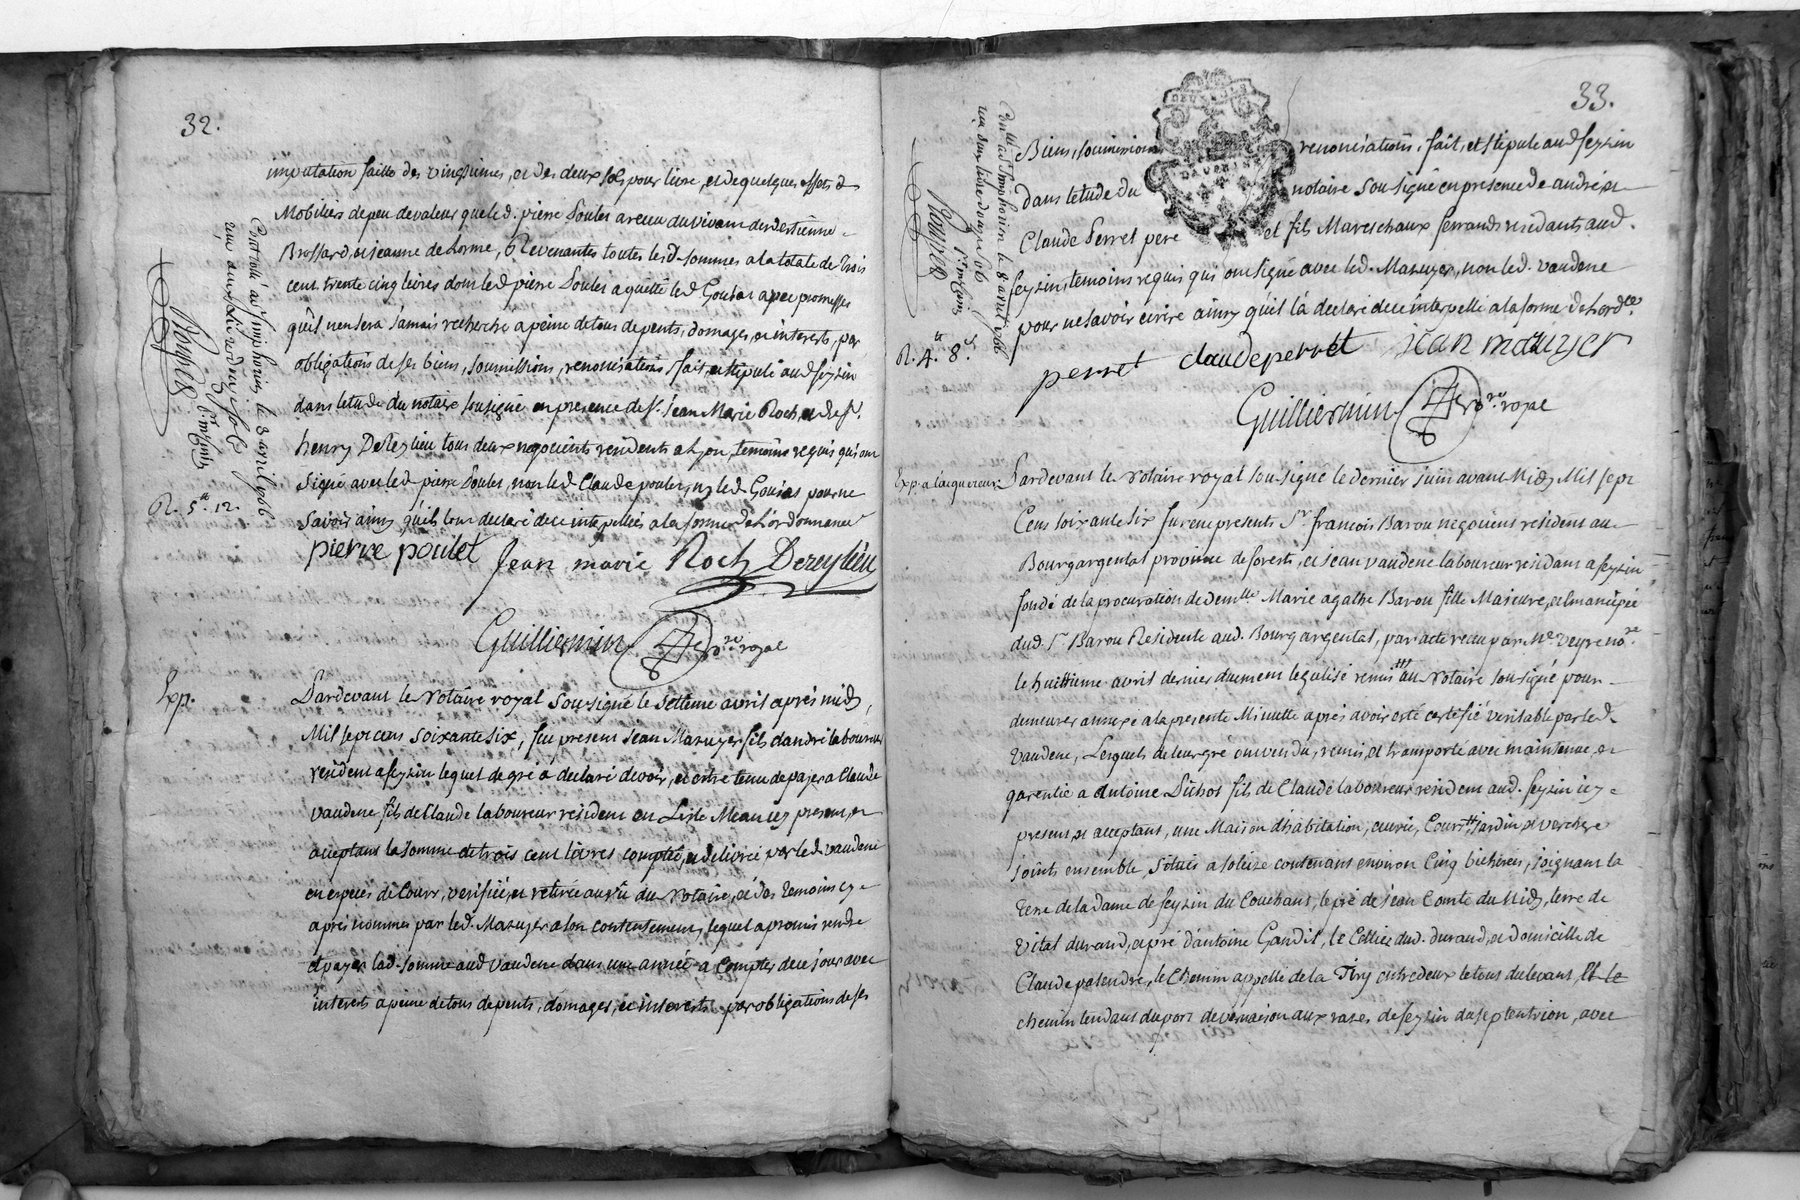 32.
imputation faitte des vingtiemes, et des deux sols pour livre, et de quelques effets &
Mobiliers de peu de valeur que led. pierre Poulet a receu du vivant desd. estienne
Brossard, et jeanne de Lorme, Revenantes toutes lesd. sommes a la totale de trois
cent trente cinq livres dont led. pierre Poulet a quitté led. Goujas avec promesses
qu'il n'en sera jamais recherché a peine de tous depents, domages, et interets, par
obligations de ses biens, soumissions, renonciations, fait, et stipulé aud. feyzin
dans letude du notaire sousigné en presence de Sr. Jean Marie Roch, et de Sr.
henry Dereylieu tous deux negocients residents a Lyon, temoins requis qui ont
signé avec led. pierre Poulet, non led. Claude poulet, ny led. Goujas pour ne
savoir ainsy qu'ils l'ont declaré de ce interpellés a la forme de L'ordonnance
pierre poulet Jean marie Roch Dereylieu
Guilliermin no.re royal
Controllé a St simphorien le 8 avril 1766
reçu
R. 5.tt 12.
Exp.
Pardevant le Notaire royal sousigné le settieme avril aprés midy,
Mil sept cens soixante six, fut present Jean Mazuyer fils d'andré laboureur
resident a feyzin lequel de gré a declaré devoir, et estre tenu de payer a Claude
vaudene fils de Claude laboureur resident en Lisle Mean icy present, et
acceptant la somme de trois cent livres comptée, et delivrée par led. vaudene
en especes de Cours, verifiée, et retirée au vû du Notaire, et des temoins cy
aprés nommés par led. Mazuyer a son contentement, lequel a promis rendre
et payer lad. somme aud. vaudene dans une année a Compter de ce jour avec
interets a peine de tous depents, domages, et interets par obligations de ses
33.
Biens, soumissions renonciations, fait, et stipulé aud. feyzin
dans letude du notaire sousigné en presence de andré et
Claude Perret pere et fils Mareschaux ferrands residants aud.
feyzin, temoins requis qui ont signé avec led. Mazuyer, non led. vaudene
pour ne savoir ecrire ainsy qu'il l'a declaré de ce interpellé a la forme de l'ord.ce
perret claude perret jean mazuyer
Guilliermin no.re royal
Con.lé a St simphorien le 8 avril 1766
R. 4.tt 8.s
Exp. a l'acquereur.
Pardevant le Notaire royal sousigné le dernier juin avant Midy Mil sept
Cens soixante six furent presents Sr. françois Barou negocient resident au
Bourgargental province de forests, et jean vaudene laboureur residant a feyzin
fondé de la procuration de dem.lle Marie agathe Barou fille Majeure, et Emancipée
dud. Sr. Barou Residente aud. Bourgargental, par acte receu par Me. veyre no.re
le huittieme avril dernier, duement legalisé remis au Notaire sousigné pour
demeurer annexé a la presente Minutte aprés avoir esté certifié veritable par led.
vaudene, Lesquels de leur gré ont vendu, remis, et transporté avec maintenue, et
garentie a Antoine Pichot fils de Claude laboureur resident aud. feyzin icy
present, et acceptant, une Maison d'habitation, curie, Cour, jardin et verchere
joints ensemble, situés a soleize contenants environ Cinq bicherées, joignant la
terre de la dame de feyzin du Couchant, le pré de jean Comte du Midy, terre de
Vital durand, et pré d'antoine Gandil, le Cellier dud. durand, et domicille de
Claude patendre, le Chemin appellé de la Tiry entre deux le tout du levant, et le
chemin tendant du port de vernaison aux razes de feyzin du septentrion, avec